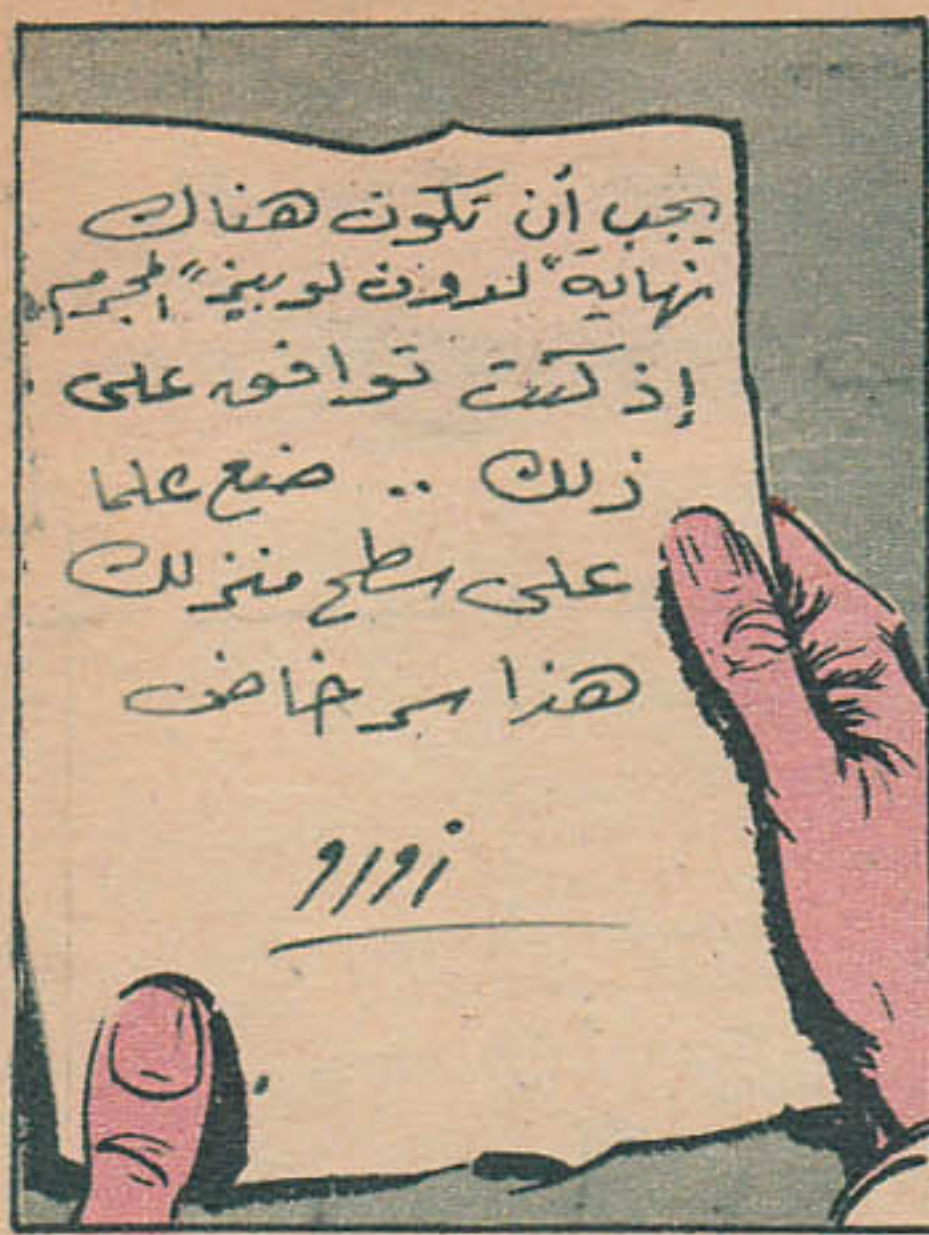 يجب أن تكون هناك
نهاية "لدون لوبيز" المجرم
إذ كنت توافق على
ذلك .. ضع علما
على سطح منزلك
هذا سر خاص
زورو